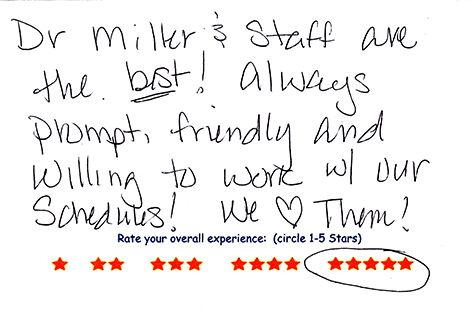 Dr Miller & Staff are
the best! Always
prompt, friendly and
willing to work w/ our
Schedules! We ♡ Them!
Rate your overall experience: (circle 1-5 Stars)
★ ★★ ★★★ ★★★★ ★★★★★